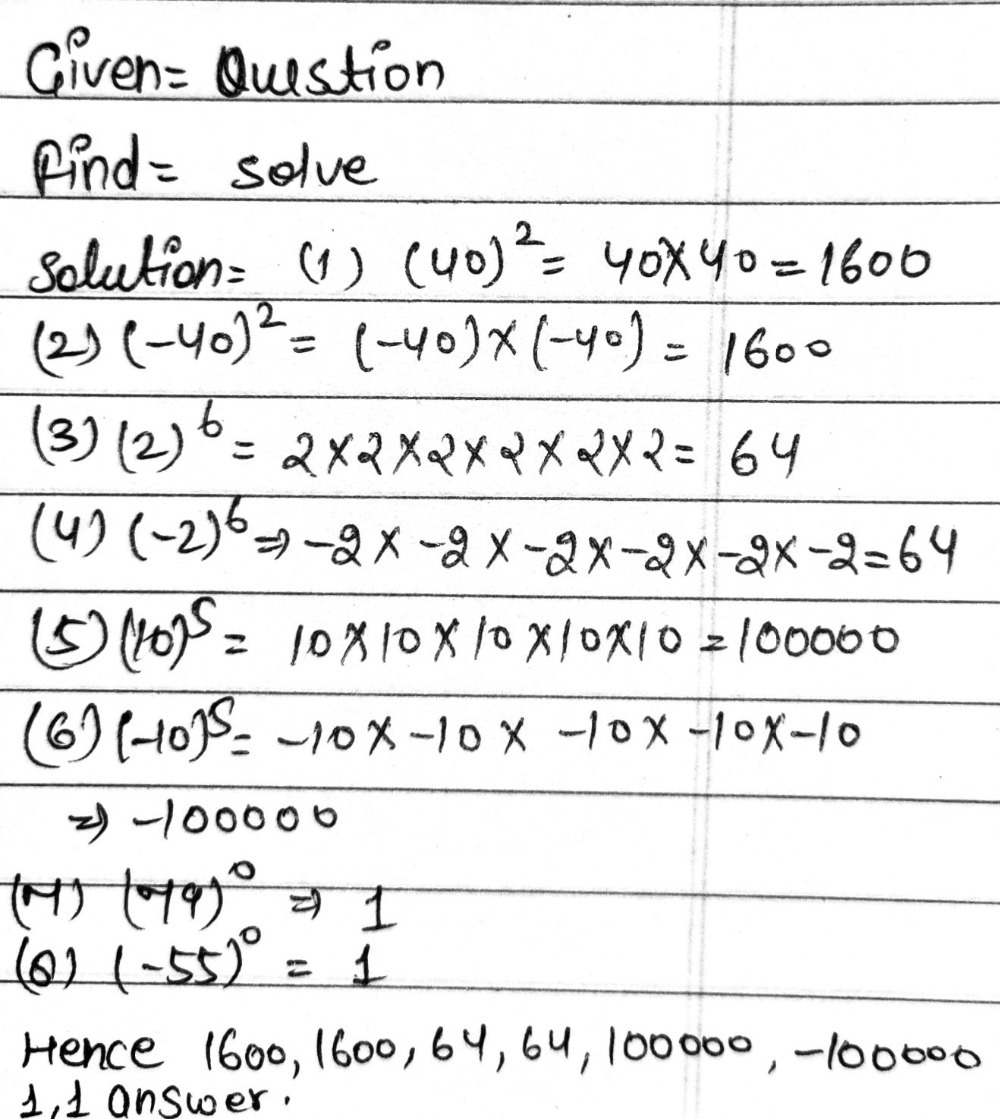 Given= Question
Find= solve
Solution= (1) (40)² = 40×40 = 1600
(2) (-40)² = (-40)×(-40) = 1600
(3) (2)⁶ = 2×2×2×2×2×2 = 64
(4) (-2)⁶ ⇒ -2× -2× -2×-2×-2×-2=64
(5) (10)⁵ = 10×10×10×10×10 = 100000
(6) (-10)⁵ = -10×-10× -10× -10×-10
⇒ -100000
(7) (79)⁰ ⇒ 1
(8) (-55)⁰ = 1
Hence 1600, 1600, 64, 64, 100000, -100000
1,1 answer.